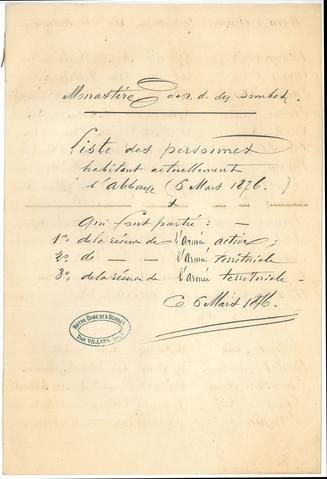 Monastère de n. d. des Dombes.
Liste des personnes
habitant actuellement
l'abbaye (6 Mars 1876.)
+
qui font partie : —
1º de la réserve de l'armée active ;
2º de — — l'armée territoriale
3º de la réserve de l'armée territoriale.
Ce 6 Mars 1876.
NOTRE DAME DES DOMBES
PAR VILLARS (AIN)